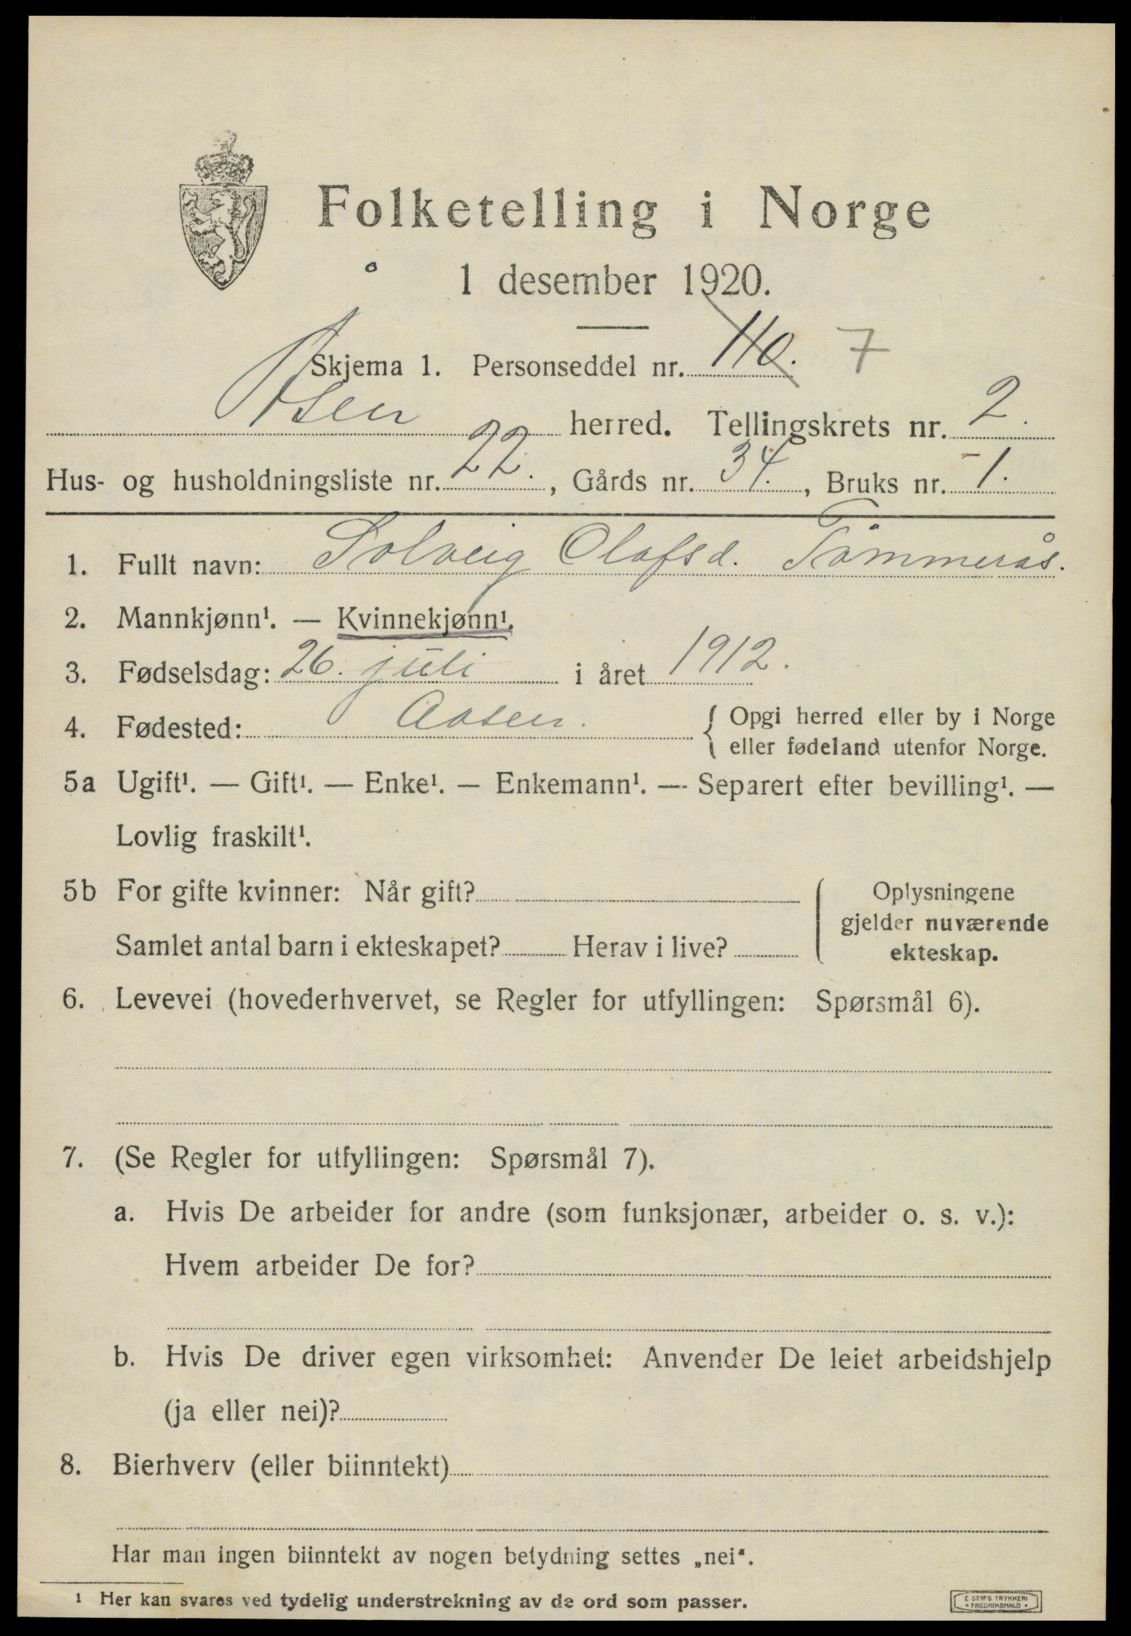 Folketelling i Norge
1 desember 1920.
Skjema 1. Personseddel nr. 110. 7
Åsen herred. Tellingskrets nr. 2.
Hus- og husholdningsliste nr. 22., Gårds nr. 34., Bruks nr. 1.
1. Fullt navn: Solveig Olafsd. Tømmerås.
2. Mannkjønn¹. — Kvinnekjønn¹.
3. Fødselsdag: 26. juli i året 1912.
4. Fødested: Aasen. { Opgi herred eller by i Norge
eller fødeland utenfor Norge.
5a Ugift¹. — Gift¹. — Enke¹. — Enkemann¹. — Separert efter bevilling¹. —
Lovlig fraskilt¹.
5b For gifte kvinner: Når gift?
Samlet antal barn i ekteskapet? Herav i live?
Oplysningene
gjelder nuværende
ekteskap.
6. Levevei (hovederhvervet, se Regler for utfyllingen: Spørsmål 6).
7. (Se Regler for utfyllingen: Spørsmål 7).
a. Hvis De arbeider for andre (som funksjonær, arbeider o. s. v.):
Hvem arbeider De for?
b. Hvis De driver egen virksomhet: Anvender De leiet arbeidshjelp
(ja eller nei)?
8. Bierhverv (eller biinntekt)
Har man ingen biinntekt av nogen betydning settes „nei“.
¹ Her kan svares ved tydelig understrekning av de ord som passer.
E SEM'S TRYKKERI
• FREDRIKSHALD •